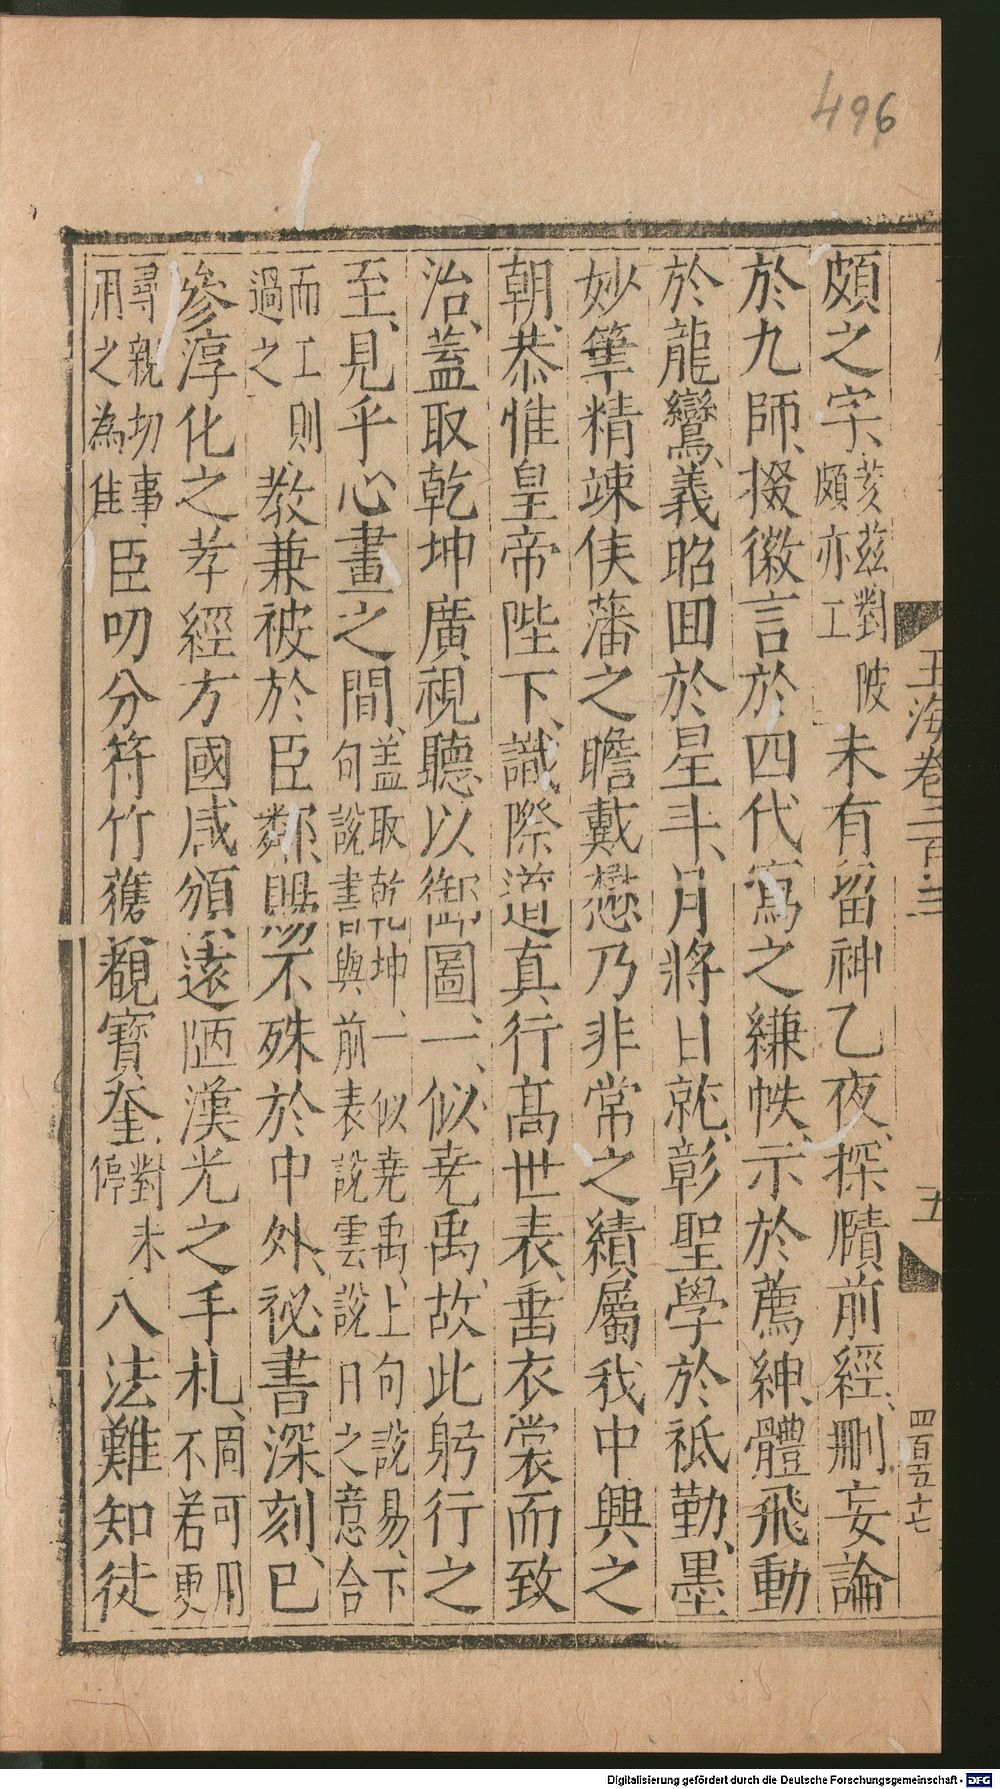 496
玉海卷二百三
五
四百五十七
頗之字、亥茲對陂頗亦工未有留神乙夜、探賾前經、刪妄論
於九師、掇徽言於四代寫之縑帙、示於薦紳、體飛動
於龍鸞、義昭回於星斗、月將日就、彰聖學於祗勤、墨
妙筆精竦侯藩之瞻戴懋乃非常之績、屬我中興之
朝、恭惟皇帝陛下、識際道真、行高世表、垂衣裳而致
治、蓋取乾坤廣視聽、以御圖、一、似堯禹、故此躬行之
至、見乎心畫之間、蓋取乾坤、一似堯禹、上句說易、下句說書與前表說雲說日之意合
而工則過之教兼被於臣鄰、賜不殊於中外、祕書深刻、已
參淳化之孝經方國咸頒、遠陋漢光之手札、同可用不若更
尋親切事用之為佳臣叨分符竹獲覩寶奎、對未停八法難知徒
Digitalisierung gefördert durch die Deutsche Forschungsgemeinschaft - DFG